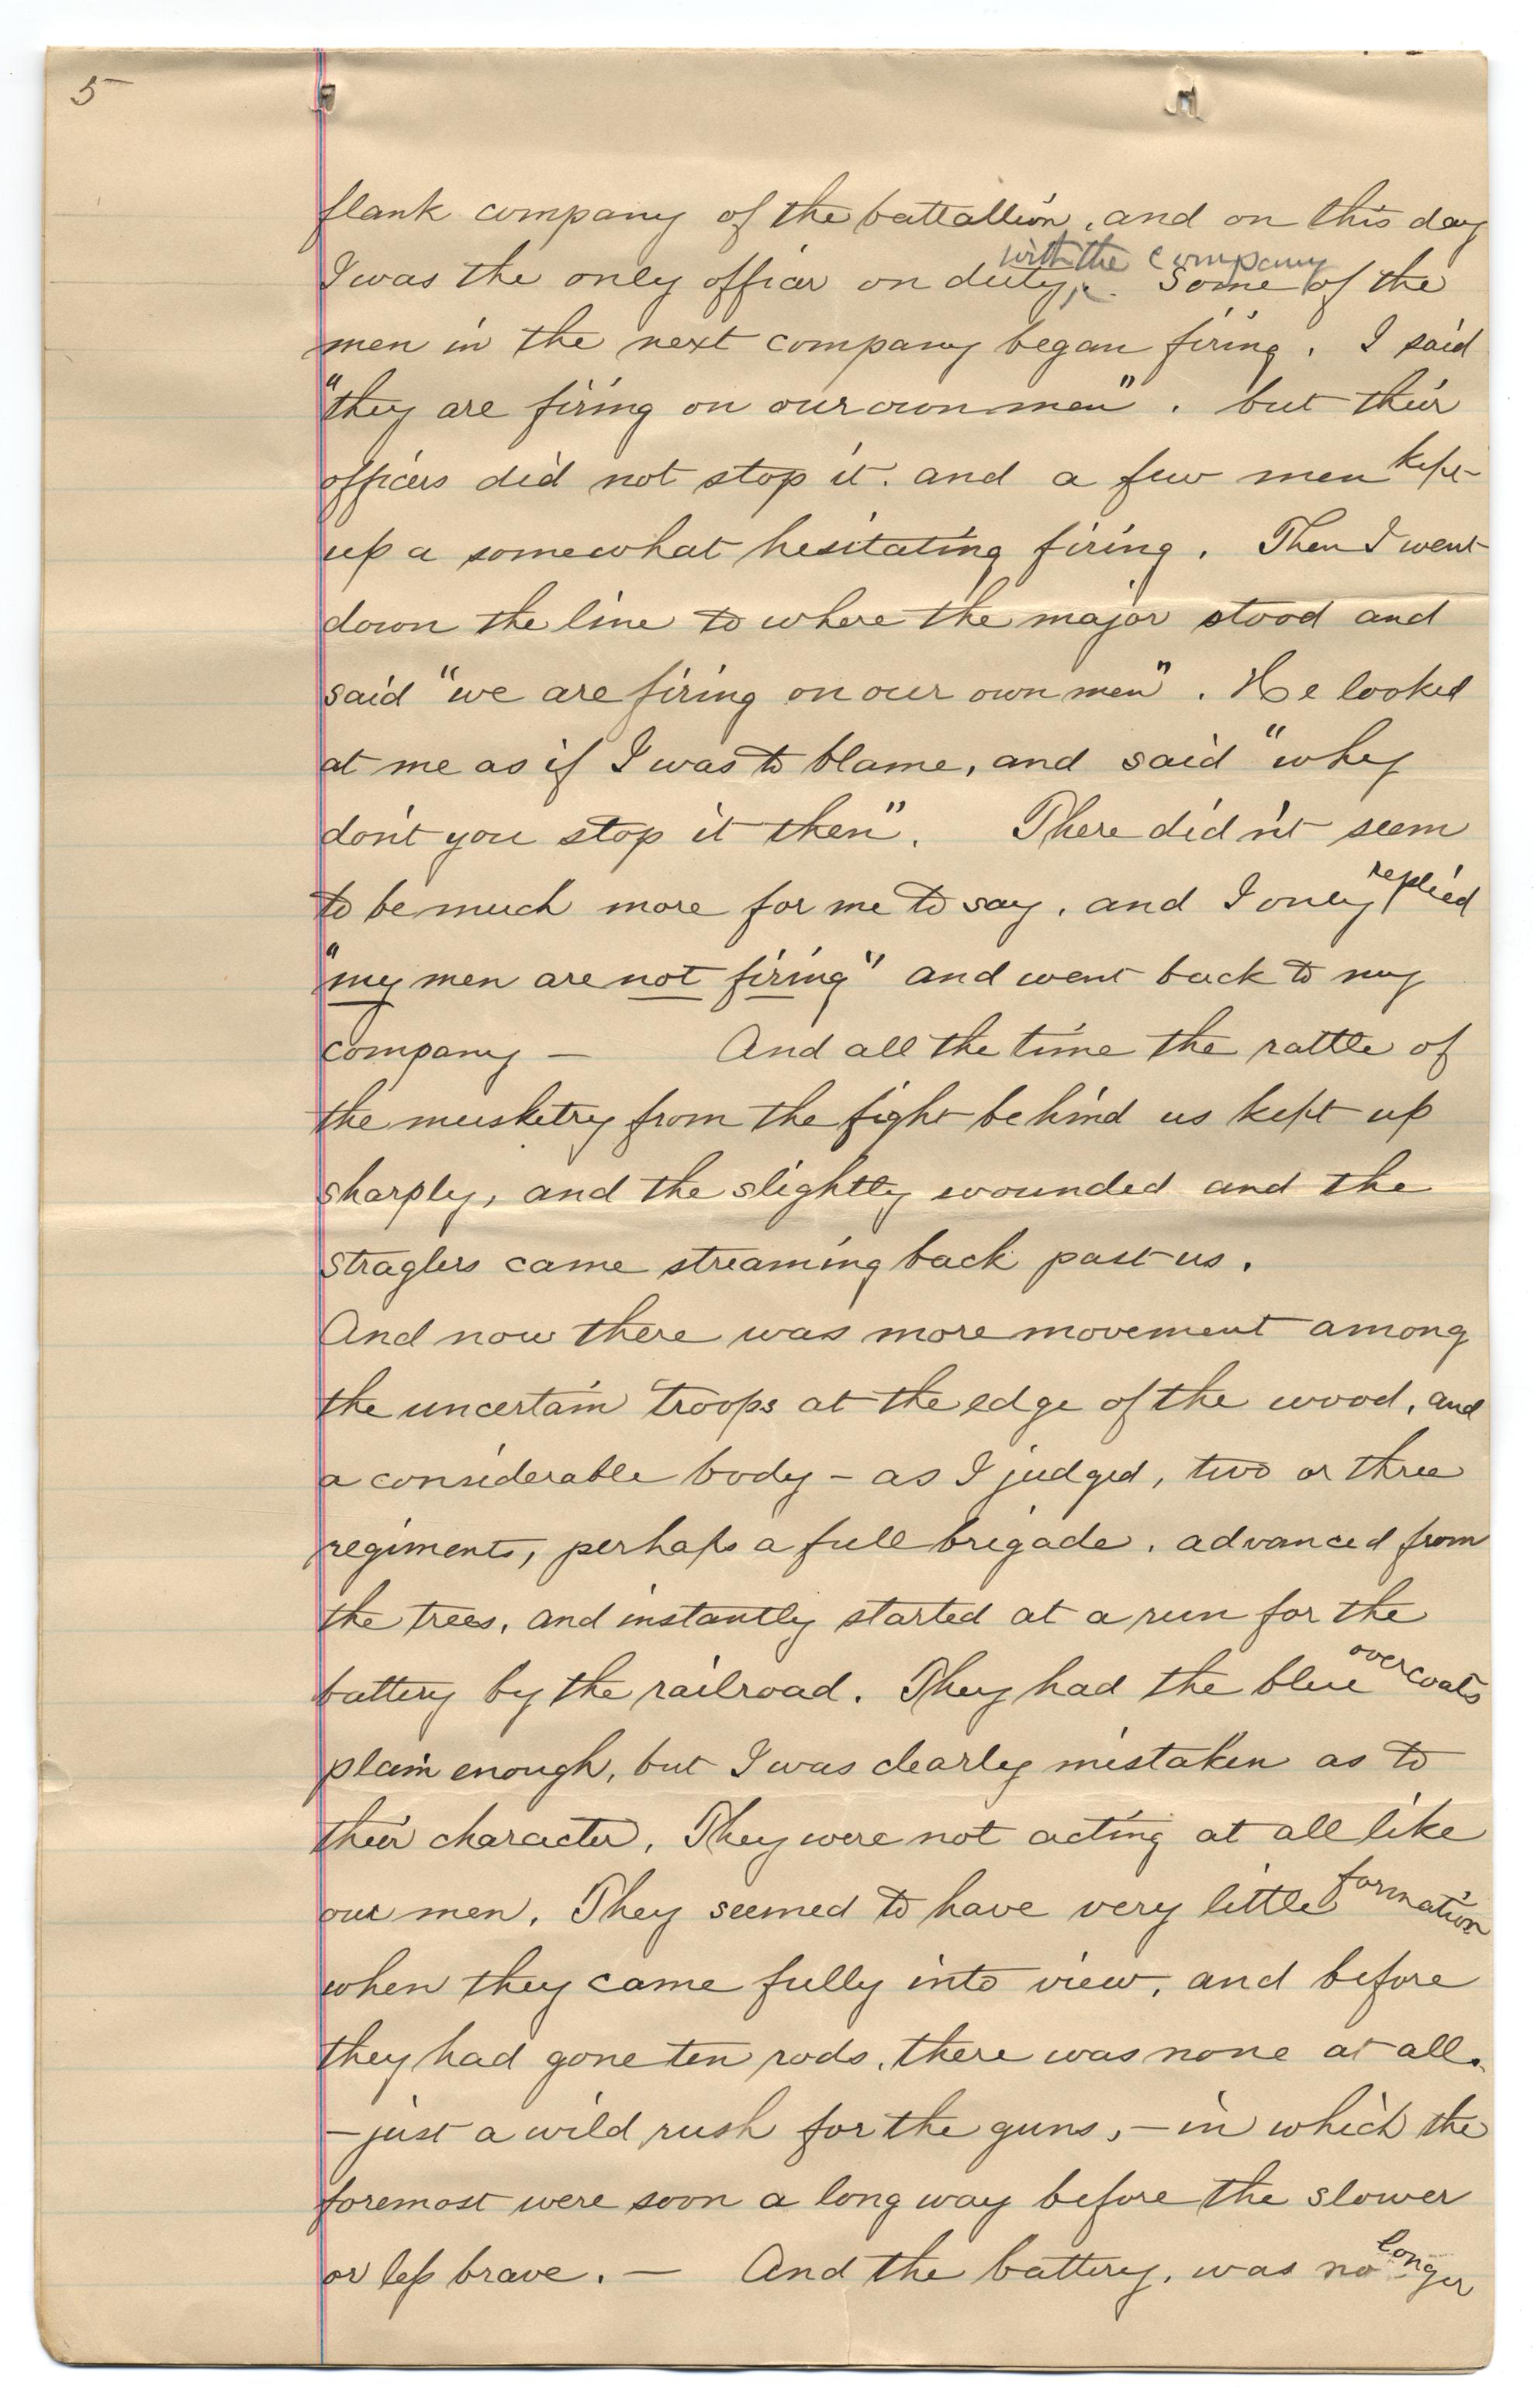 5
flank company of the battallion, and on this day
with the company
I was the only officer on duty. Some of the
men in the next company began firing. I said
"they are firing on our own men". but their
officers did not stop it. and a few men kept
up a somewhat hesitating firing. Then I went
down the line to where the major stood and
said "we are firing on our own men". He looked
at me as if I was to blame, and said "why
don't you stop it then". There didn't seem
to be much more for me to say, and I only replied
"my men are not firing" and went back to my
company — And all the time the rattle of
the musketry from the fight behind us kept up
sharply, and the slightly wounded and the
straglers came streaming back past us.
And now there was more movement among
the uncertain troops at the edge of the wood, and
a considerable body – as I judged, two or three
regiments, perhaps a full brigade. advanced from
the trees, and instantly started at a run for the
battery by the railroad. They had the blue overcoats
plain enough, but I was clearly mistaken as to
their character. They were not acting at all like
our men. They seemed to have very little formation
when they came fully into view, and before
they had gone ten rods, there was none at all.
– just a wild rush for the guns, – in which the
foremost were soon a long way before the slower
or less brave. — And the battery, was no longer